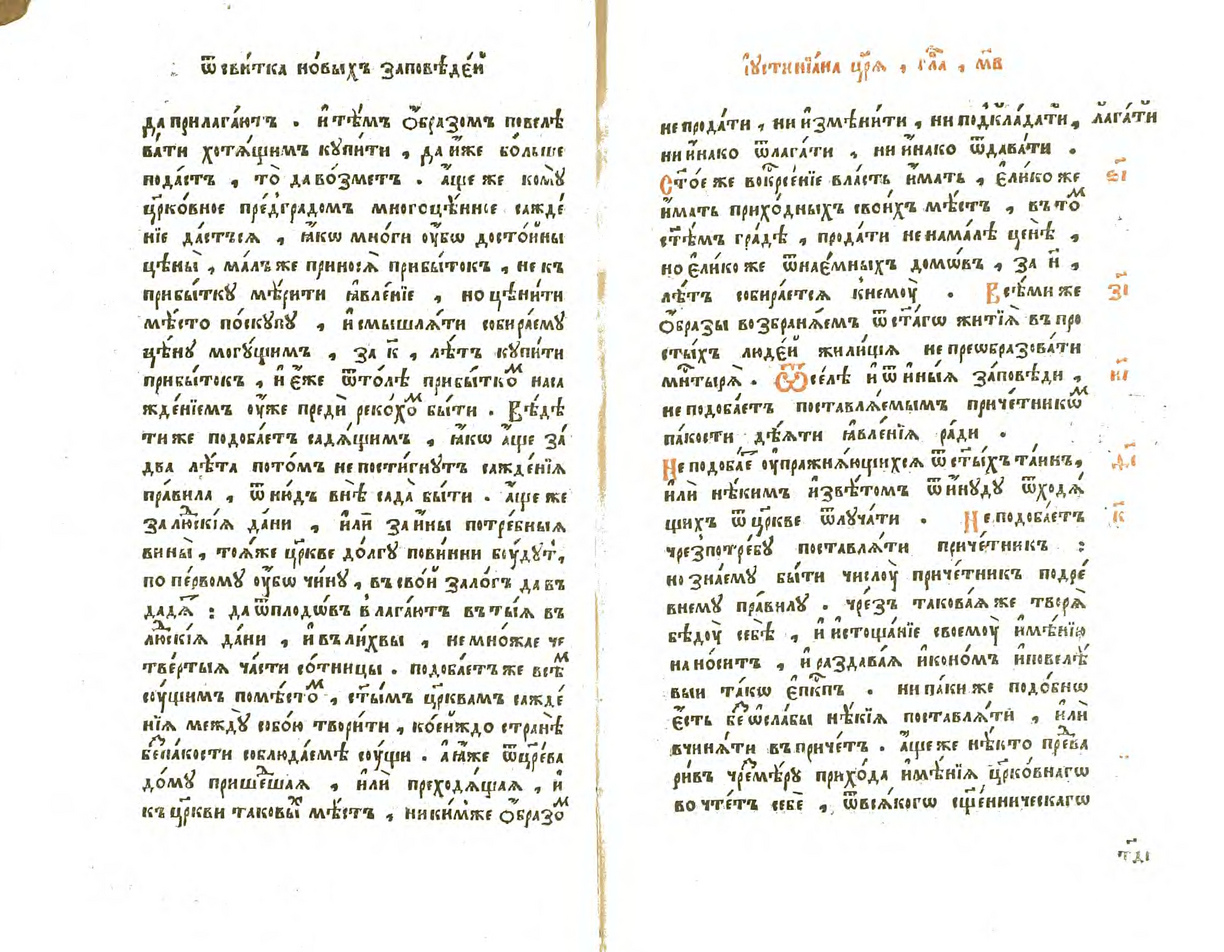 ѿ свитка но́выхъ за́повѣде́й
да прилага́ютъ . и҆ тѣ́мъ ѻ҆́бразомъ повелѣ
ва́ти хотѧ́щимъ кꙋпи́ти , да и҆́же бо́льше
пода́стъ , то̀ да во́зметъ . а҆́ще же комꙋ̀
цр҃ко́вное пред̾гра́домъ многоцѣ́нное сажде́
нїе да́стъсѧ , ꙗ҆́кѡ мно́ги ᲂу҆́бѡ досто́йны
цѣны̀ , ма́лъ же приносѧ̀ прибы́токъ , не къ
прибы́ткꙋ мѣ́рити ꙗ҆вле́нїе , но цѣни́ти
мѣ́сто по́скꙋпꙋ , и҆ смышлѧ́ти собира́емꙋ
цѣ́нꙋ могꙋ́щимъ , за к҃ , лѣ́тъ кꙋпи́ти
прибы́токъ , и҆ є҆́же ѿто́лѣ прибы́ткоⷨ наса
жде́нїемъ ᲂу҆́же предѝ реко́хоⷨ бы́ти . Вѣ́дѣ
ти же подоба́етъ садѧ́щимъ , ꙗ҆́кѡ а҆́ще за́
два лѣ́та пото́мъ не пости́гнꙋтъ сажде́нїѧ
пра́вила , ѿню́дъ внѣ̀ сада̀ бы́ти . а҆́ще же
за лю́дскїѧ да́ни , и҆лѝ за и҆́ны потре́бныѧ
вины̀ , тоѧ́же цр҃кве до́лгꙋ пови́нни бꙋ́дꙋтъ,
по пе́рвомꙋ ᲂу҆́бѡ чи́нꙋ , въ сво́й зало́гъ да въ
дадѧ́тъ : да ѿ плодѡ́въ влага́ютъ въ ты́ѧ въ
лю́дскїѧ да́ни , и҆ въ ли́хвы , не мно́жае че
тве́ртыѧ ча́сти со́тницы . подоба́етъ же всѣ́ⷨ
сꙋ́щимъ по мѣ́стоⷨ , ст҃ы́мъ цр҃квамъ сажде́
нїѧ междꙋ̀ собо́ю твори́ти , ко́ейждо странѣ̀
беⷥпа́кости соблюда́емѣ сꙋ́щи . а҆ ꙗ҆́же ѿ цр҃е́ва
до́мꙋ прише́дшаѧ , и҆лѝ преходѧ́щаѧ , и҆
къ цр҃кви таковы́хъ мѣ́стъ , ники́мже ѻ҆́бразоⷨ
і҆ꙋстинїа́на цр҃ѧ̀ , гла҃ , м҃в
не прода́ти , ни и҆змѣни́ти , ни по́дкла́дати , лага́ти
ни и҆́нако ѿлага́ти , ни и҆́нако ѿдава́ти .
Ст҃о́е же воскресе́нїе вла́сть и҆́мать , є҆ли́ко же
и҆́мать прихо́дныхъ свои́хъ мѣ́стъ , въ тоⷨ
ст҃ѣ́мъ гра́дѣ , прода́ти не на ма́лѣ цѣнѣ̀ ,
но є҆ли́ко же ѿ нае́мныхъ домѡ́въ , за н҃ ,
лѣ́тъ собира́етсѧ к̾немꙋ̀ . Всѣ́ми же
ѻ҆́бразы возбранѧ́емъ ѿ ст҃а́гѡ житїѧ̀ въ про
сты́хъ люде́й жили́щѧ не преѡбразова́ти
мнⷭ҇тырѧ̀ . Ѿсе́лѣ и҆ ѿ и҆ны́ѧ за́повѣди ,
не подоба́етъ поставлѧ́емымъ приче́тникѡⷨ
па́кости дѣ́ѧти ꙗ҆вле́нїѧ ра́ди .
Не подоба́етъ ᲂу҆пражнѧ́ющихсѧ ѿ ст҃ы́хъ та́инъ,
и҆лѝ нѣ́кимъ и҆звѣ́томъ ѿ и҆нꙋ́дꙋ ѿходѧ́
щихъ ѿ цр҃кве ѿлꙋча́ти . Не подоба́етъ
чрезпотре́бꙋ поставлѧ́ти приче́тникъ :
но зна́емꙋ бы́ти числꙋ̀ приче́тникъ по дре́
внемꙋ пра́вилꙋ . чре́зъ такова́ѧ же творѧ̀
бѣдꙋ̀ себѣ̀ , и҆ и҆стоща́нїе своемꙋ̀ и҆мѣ́нїю
нано́ситъ , и҆ раздава́ѧ и҆коно́мъ и҆ повелѣ́
выи та́кѡ є҆пⷭ҇кпъ . ни па́ки же подо́бнѡ
є҆́сть беⷥ ѡ҆сла́бы нѣ́кїѧ поставлѧ́ти , и҆лѝ
вчинѧ́ти въ при́четъ . а҆́ще же нѣ́кто преⷣва
ри́въ чреⷥмѣ́рꙋ прихо́да и҆мѣ́нїѧ цр҃ко́внагѡ
во чте́тъ себѐ , ѿ всѧ́когѡ сщ҃е́нническагѡ
є҃і
з҃і
и҃і
ѳ҃і
к҃
тд҃і